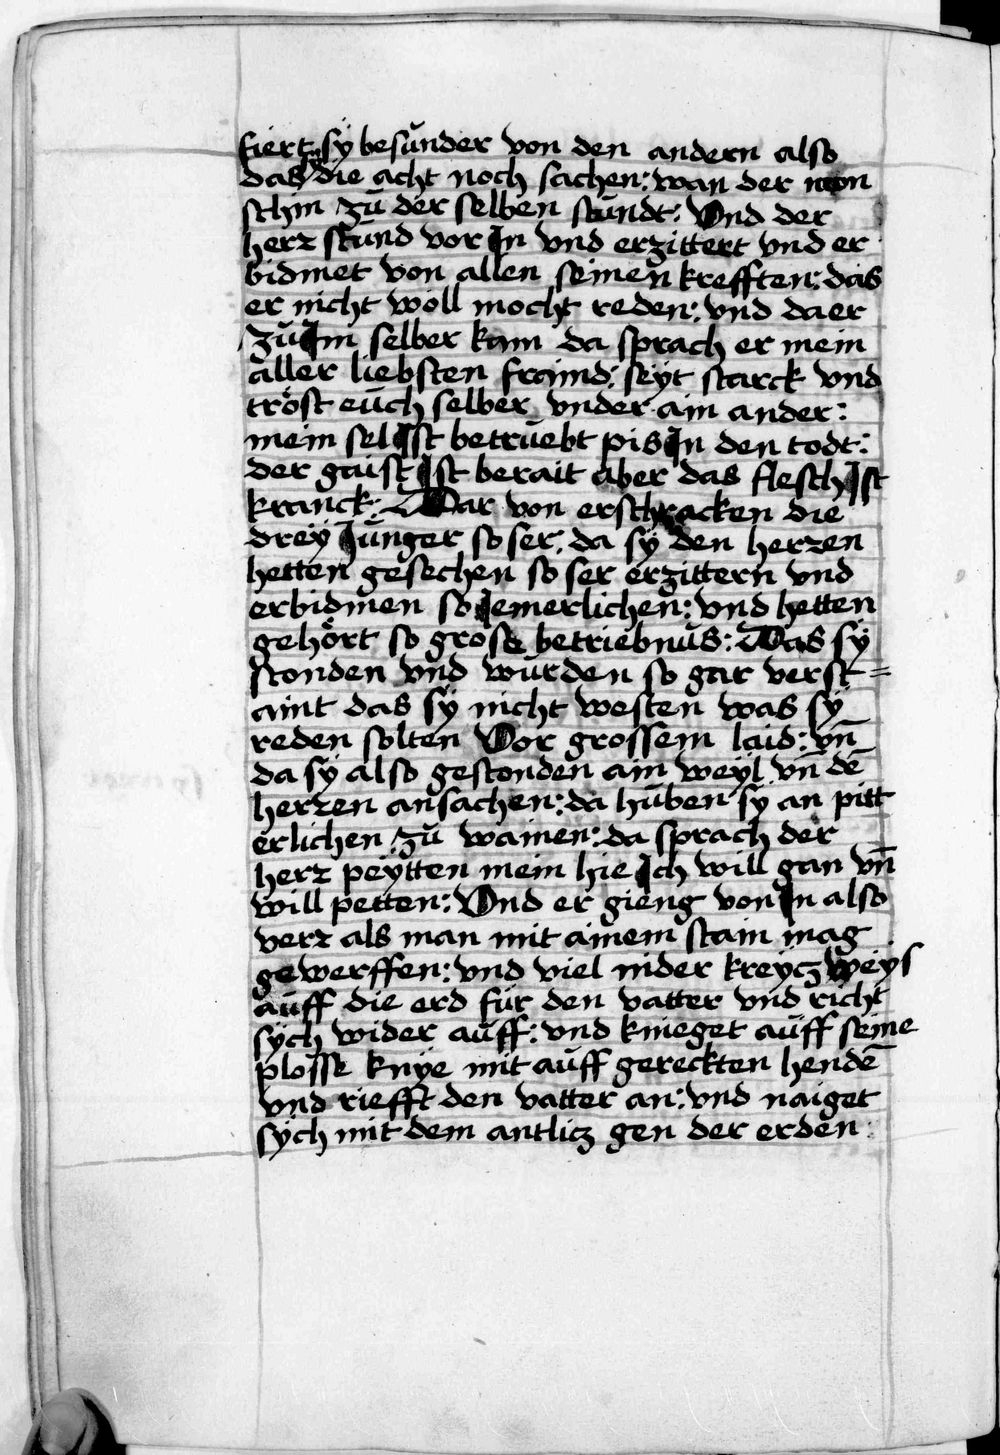 fiert sÿ besŭnder von den andern also
das die acht noch sachen: wan der mon
schin zŭ der selben stŭndt: Vnd der
herz stŭnd vor In vnd erzittert vnd er
bidmet von allen seinen krefften: das
er nicht woll mocht reden: vnd da er
zŭ Im selber kam da sprach er mein
aller liebsten fraind: seÿt starck vnd
tröst eŭch selber vnder ain ander:
mein sel Ist betrŭebt pis In den todt:
der gaist Ist berait aber das flesch Ist
kranck: Dar von erschracken die
dreÿ Jŭnger so ser. da sÿ den herzen
hetten gesechen so ser erzittern vnd
erbidmen so Jemerlichen: vnd hetten
gehört so grose betriebnŭs: Das sÿ
stonden vnd wŭrden so gar verst=
aint das sÿ nicht westen was sÿ
reden solten Vor grossem laid: vn̄
da sÿ also gestonden ain weÿl vn̄ dē
herzen ansachen: da hŭben sÿ an pitt
erlichen zŭ wainen: da sprach der
herz peÿtten mein hie Ich will gan vn̄
will petten: Vnd er gieng von In also
verz als man mit ainem stain mag
gewerffen: vnd viel nider kreÿcz weÿs
aŭff die erd fŭr den vatter vnd richt
sÿch wider aŭff: vnd knieget aŭff seine
plosse knÿe mit aŭff gereckten hendē
vnd riefft den vatter an: vnd naiget
sÿch mit dem antlicz gen der erden